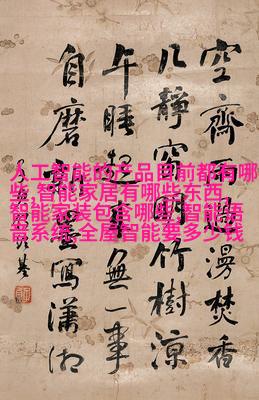 空齋雨過漫焚香
几靜窗明竹樹涼
午睡起來無一事
自磨墨寫瀟湘
人工智能的产品目前都有哪
些,智能家居有哪些东西,
智能家装包含哪些,智能语
音系统,全屋智能要多少钱